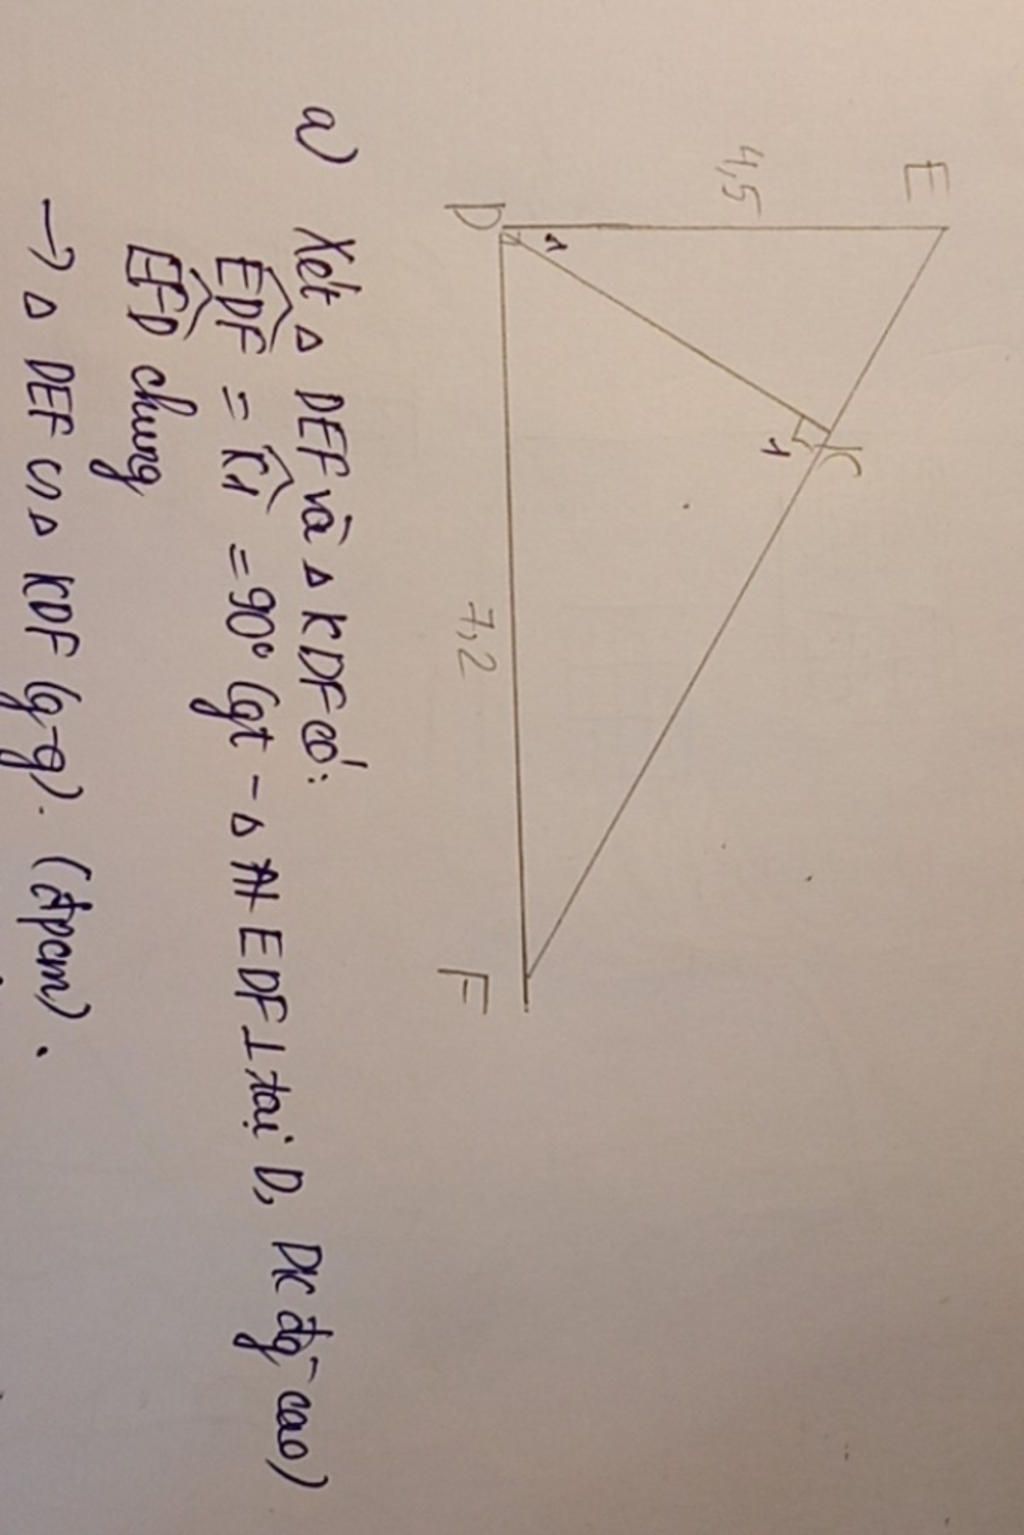 E
4,5
1
K
1
D
7,2
F
a) Xét △ DEF và △ KDF có:
EDF = K1 = 90° (gt - △ EDF ⊥ tại D, DK đg cao)
EFD chung
→ △ DEF ∽ △ KDF (g-g). (đpcm).